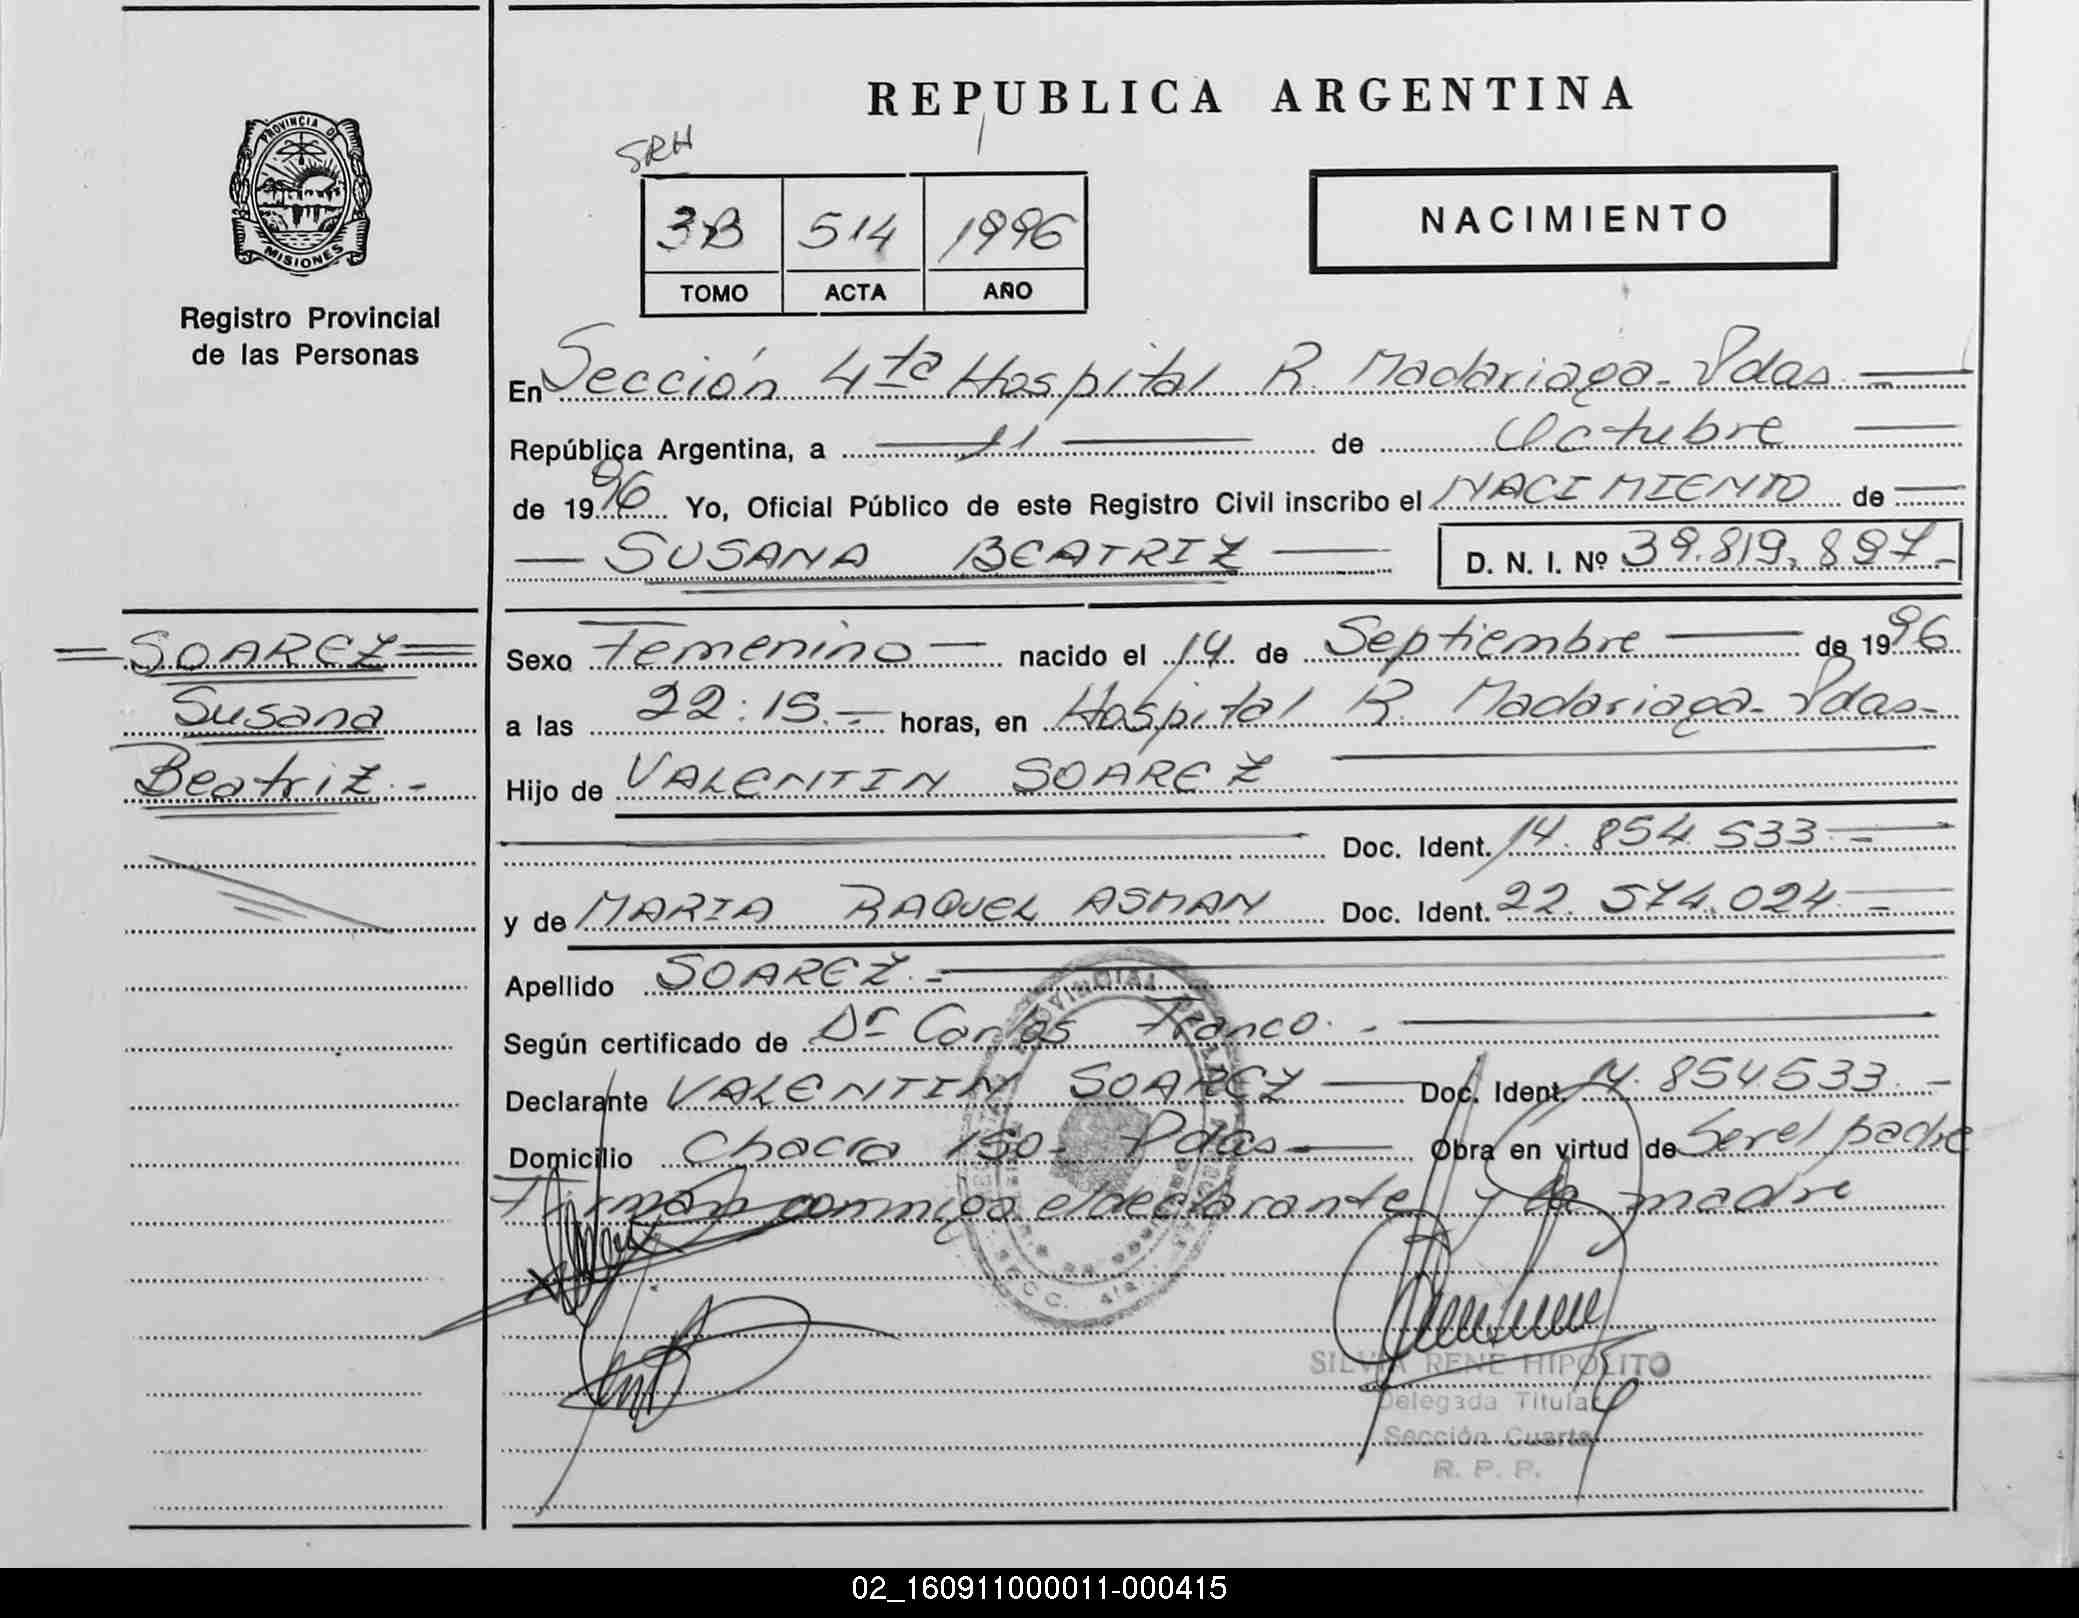 REPUBLICA ARGENTINA
PROVINCIA D
MISIONES
Registro Provincial
de las Personas
SRH
3B 514 1996
TOMO ACTA AÑO
NACIMIENTO
En Sección 4ta Hospital R. Madariaga - Pdas. —
República Argentina, a — 11 — de Octubre —
de 1996 Yo, Oficial Público de este Registro Civil inscribo el NACIMIENTO de —
— SUSANA BEATRIZ — D. N. I. Nº 39.819.897-
= SOAREZ =
Susana
Beatriz.-
Sexo Femenino — nacido el 14 de Septiembre — de 1996
a las 22:15.- horas, en Hospital R. Madariaga - Pdas-
Hijo de VALENTIN SOAREZ —
— Doc. Ident. 14.854.533 -
y de MARIA RAQUEL ASMAN Doc. Ident. 22.574.024 -
Apellido SOAREZ.-
Según certificado de Dr Carlos Franco.-
Declarante VALENTIN SOAREZ — Doc. Ident. 14.854533.-
Domicilio Chacra 150- Pdas — Obra en virtud de Ser el padre
Firman conmigo el declarante y la madre
SECC. 4ta
SILVIA RENE HIPOLITO
Delegada Titular
Sección Cuarta
R. P. P.
02_160911000011-000415